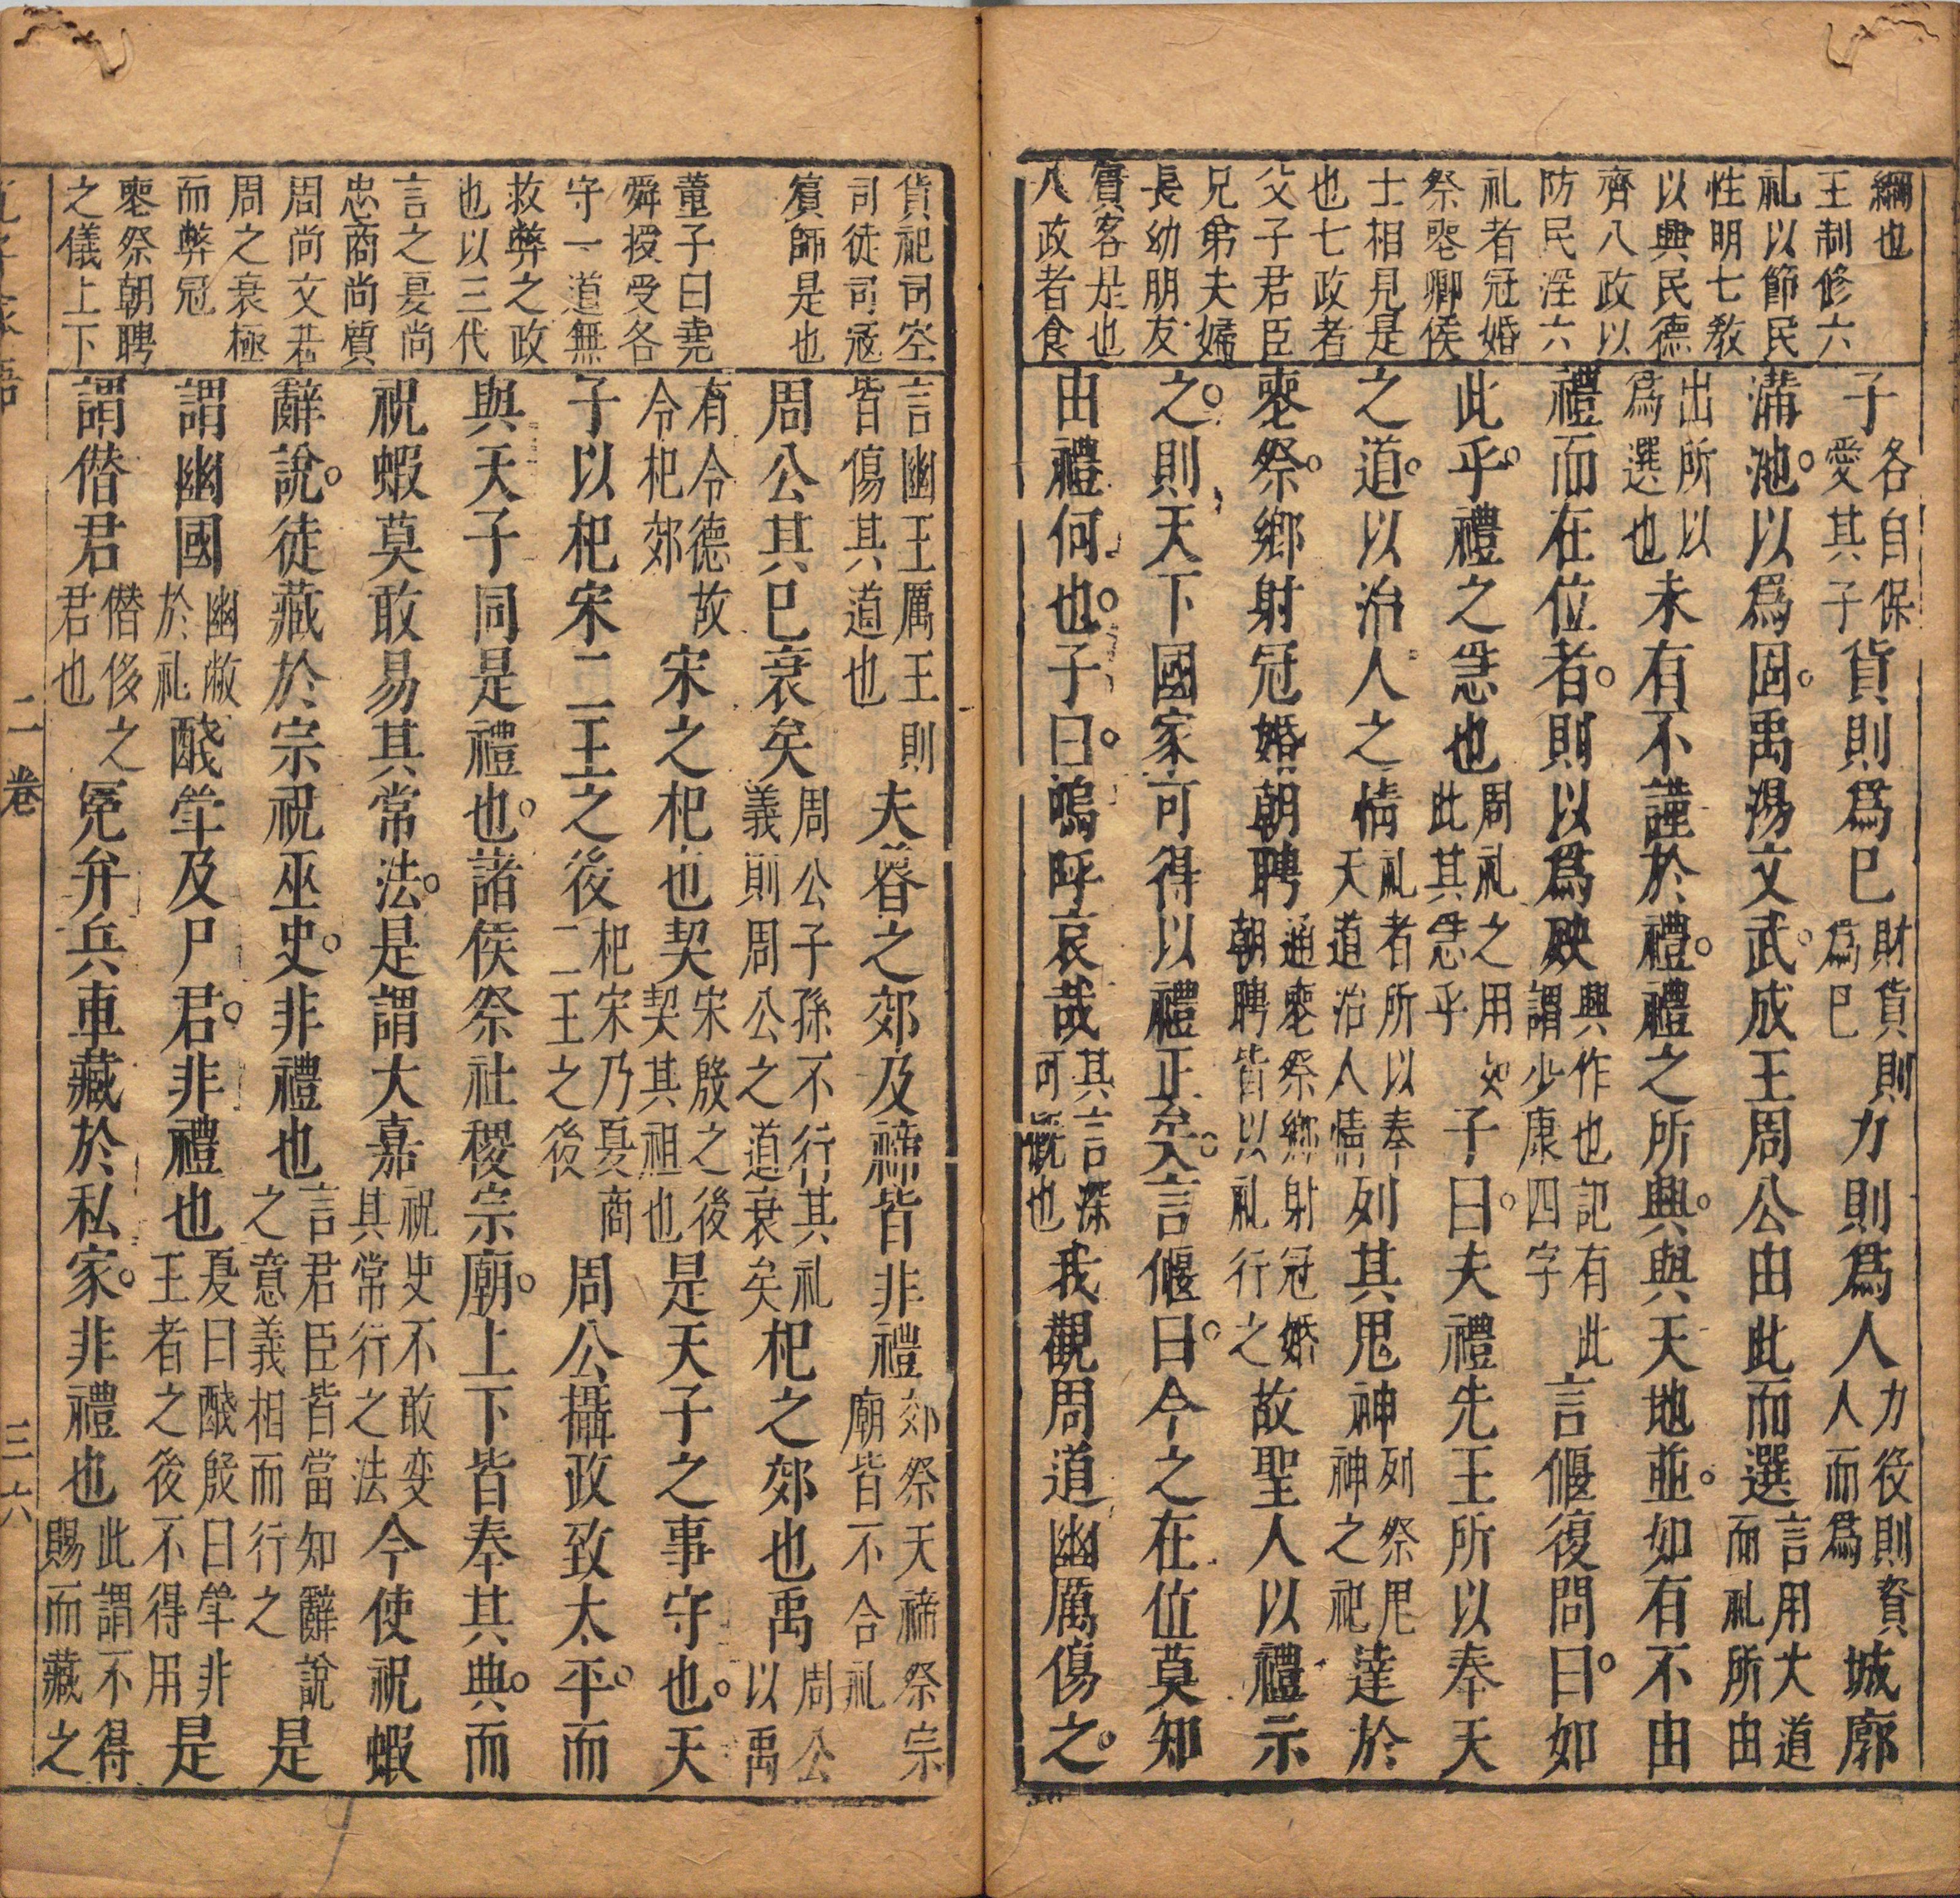 綱也
王制修六
礼以節民
性明七敎
以興民德
齊八政以
防民淫六
礼者冠婚
祭䘮卿侯
士相見是
也七政者
父子君臣
兄弟夫婦
長幼朋友
賓客是也
八政者食
子各自保愛其子貨則爲巳財貨則為巳力則爲人力役則資人而爲城廓
溝池。以爲固。禹湯文武。成王周公由此而選言用大道而礼所由
出所以爲選也未有不謹於禮。禮之所興。與天地並。如有不由
禮而在位者。則以爲殃興作也記有此謂少康四字言偃復問曰。如
此乎。禮之急也周礼之用如此其急乎子曰。夫禮先王所以奉天
之道。以治人之情礼者所以奉天道治人情列其鬼神列祭鬼神之祀達於
䘮祭。鄉射冠婚朝聘通䘮祭鄉射冠婚朝聘皆以礼行之故聖人以禮示
之。則天下國家可得以禮正矣。言偃曰。今之在位莫知
由禮何也。子曰。嗚呼哀哉其言深可慨也我觀周道幽厲傷之。
貨祀司空
司徒司寇
賓師是也
董子曰堯
舜授受各
守一道無
救弊之政
也以三代
言之夏尚
忠商尚質
周尚文若
周之衰極
而弊冠
䘮祭朝聘
之儀上下
言幽王厲王則皆傷其道也夫魯之郊及禘皆非禮郊祭天禘祭宗廟皆不合礼
周公其巳衰矣周公子孫不行其礼義則周公之道衰矣杞之郊也禹周公以禹
有令德故令杞郊宋之杞也契宋殷之後契其祖也是天子之事守也。天
子以杞宋二王之後杞宋乃夏商二王之後周公攝政致太平。而
與天子同是禮也。諸侯祭社稷宗廟。上下皆奉其典。而
祝蝦莫敢易其常法。是謂大嘉祝史不敢变其常行之法今使祝蝦
辭說。徒藏於宗祝巫史。非禮也言君臣皆當知辭說之意義相而行之是
謂幽國幽敝於礼醆斝及尸君。非禮也夏曰醆殷曰斝非王者之後不得用是
謂僭君僭侈之君也冕弁兵車藏於私家。非禮也此謂不得賜而藏之
二卷
三六